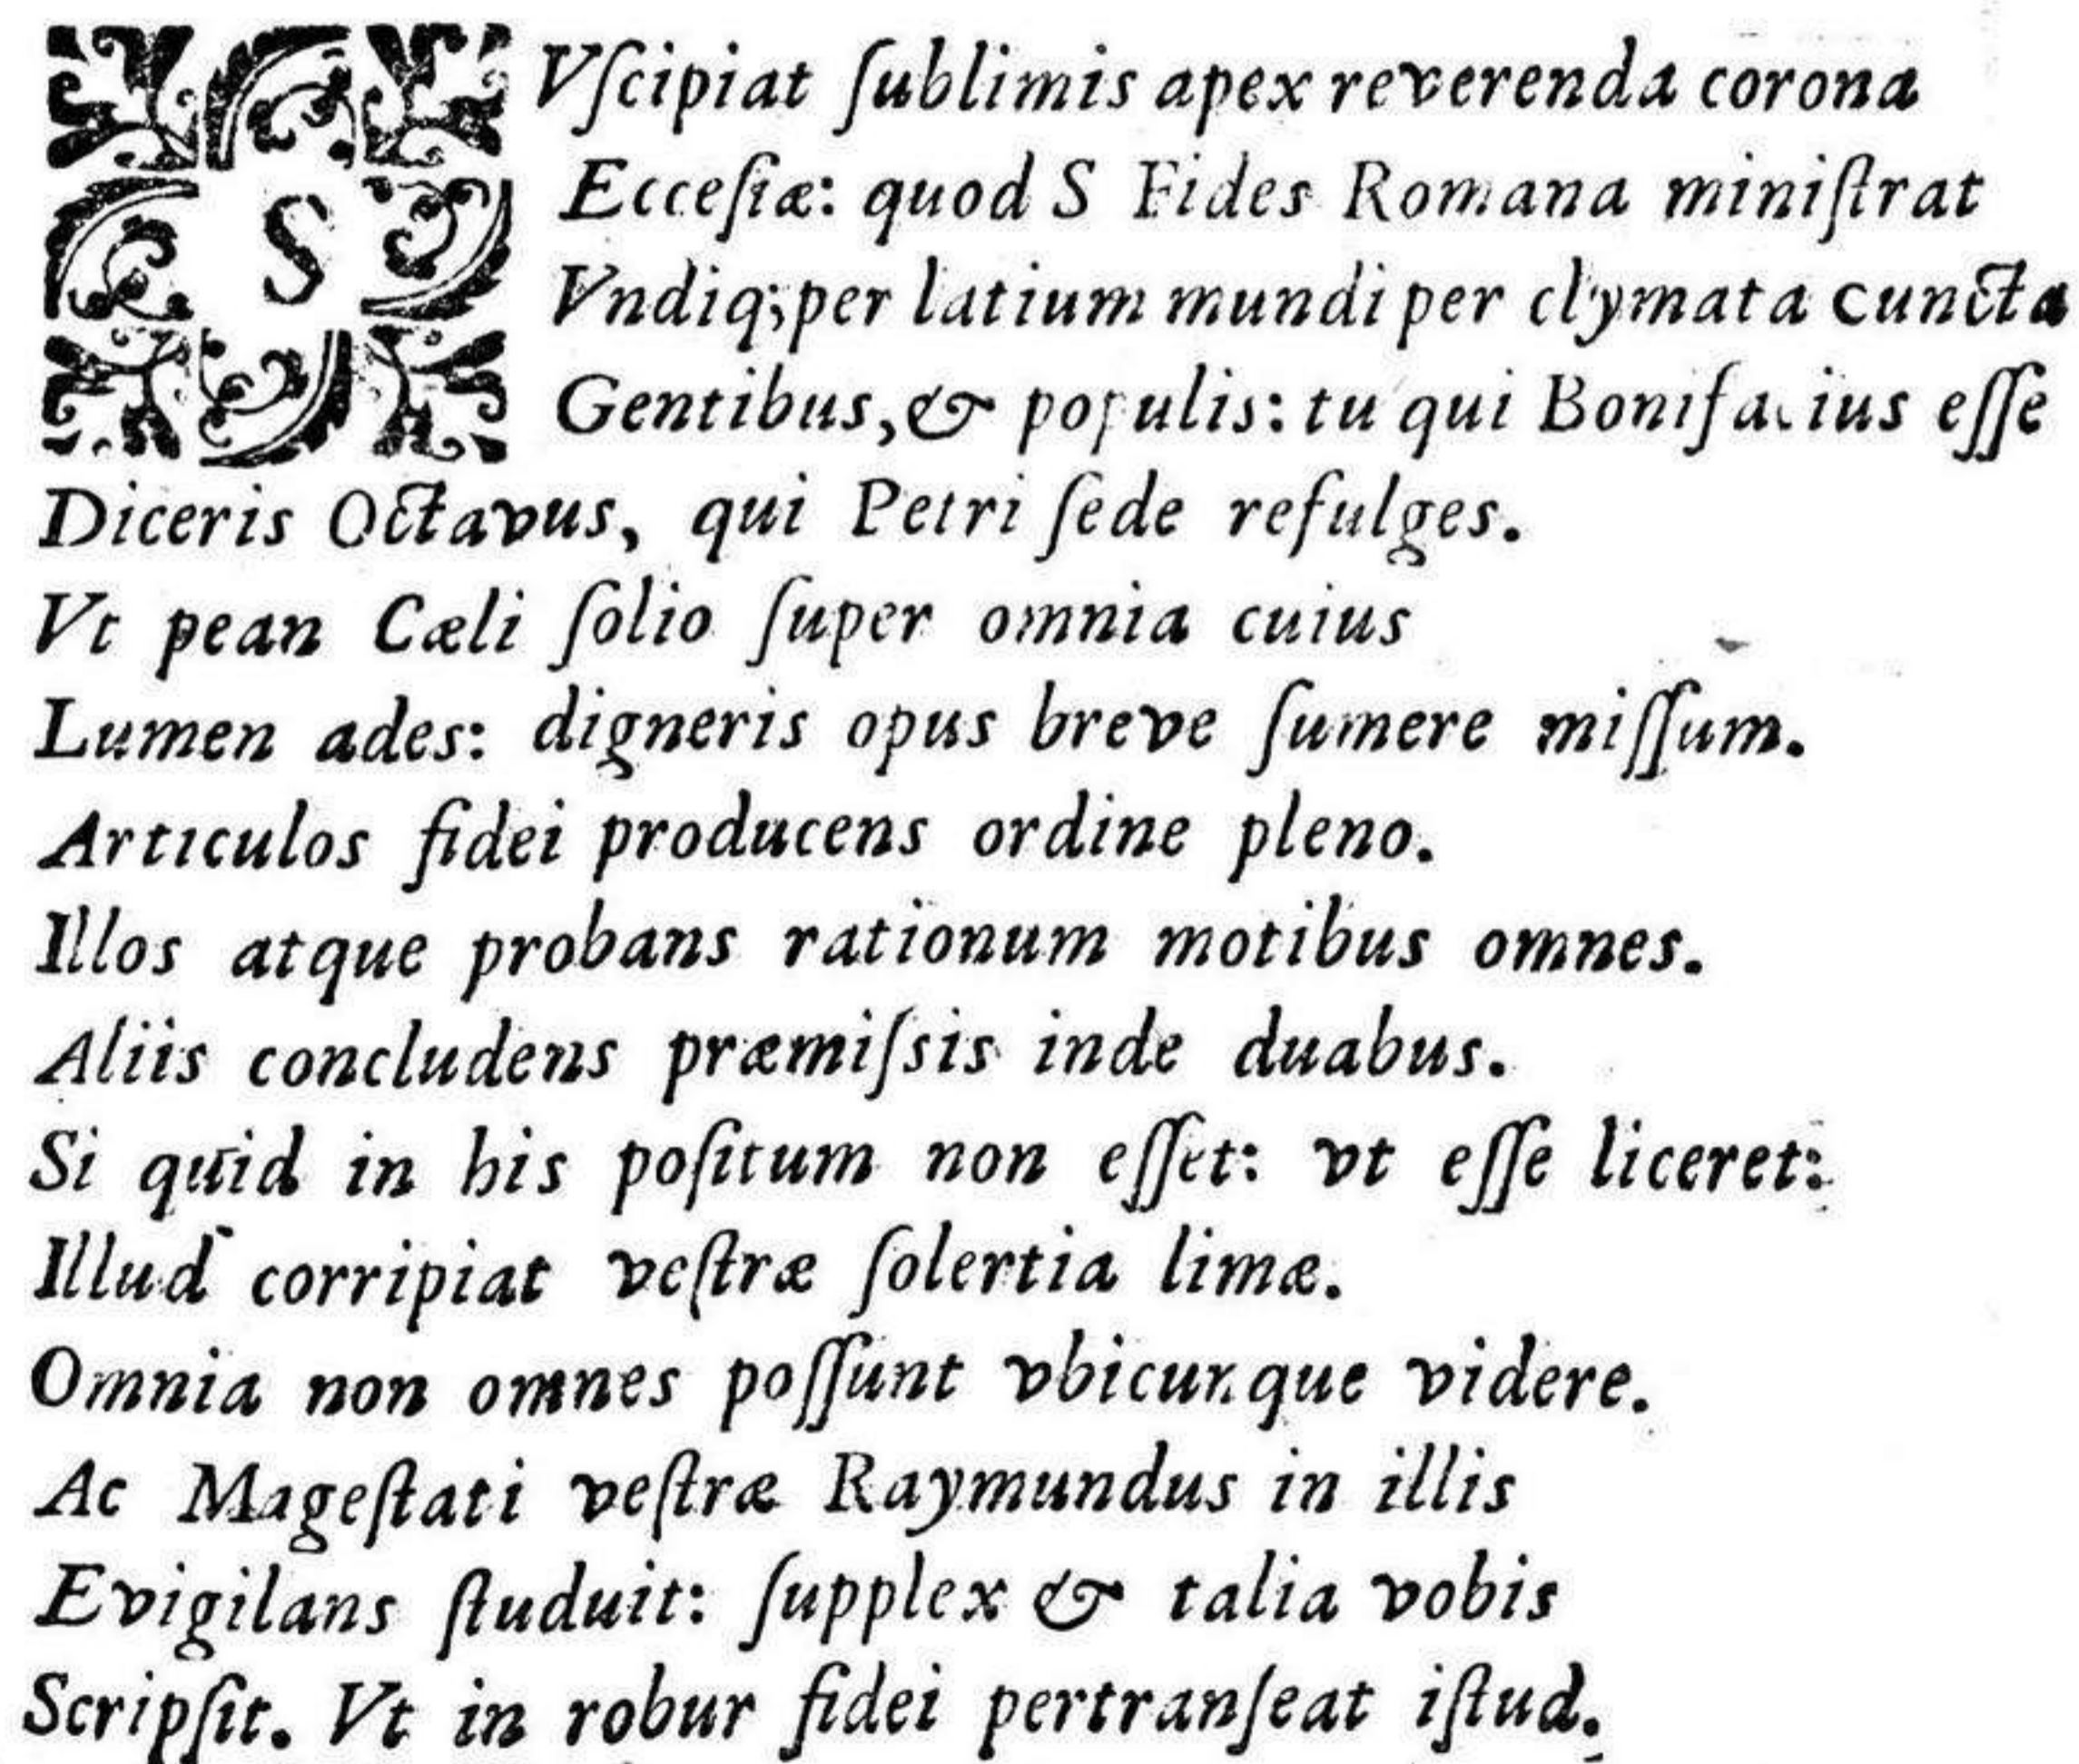 SVſcipiat ſublimis apex reverenda corona
Ecceſiæ: quod S Fides Romana miniſtrat
Vndiq;per latium mundi per clymata cuncta
Gentibus, & populis: tu qui Bonifacius eſſe
Diceris Octavus, qui Petri ſede refulges.
Vt pean Cæli ſolio ſuper omnia cuius
Lumen ades: digneris opus breve ſumere miſſum.
Articulos fidei producens ordine pleno.
Illos atque probans rationum motibus omnes.
Aliis concludens præmiſsis inde duabus.
Si quid in his poſitum non eſſet: vt eſſe liceret:
Illud corripiat veſtræ ſolertia limæ.
Omnia non omnes poſſunt vbicunque videre.
Ac Mageſtati veſtræ Raymundus in illis
Evigilans ſtuduit: ſupplex & talia vobis
Scripſit. Vt in robur fidei pertranſeat iſtud.